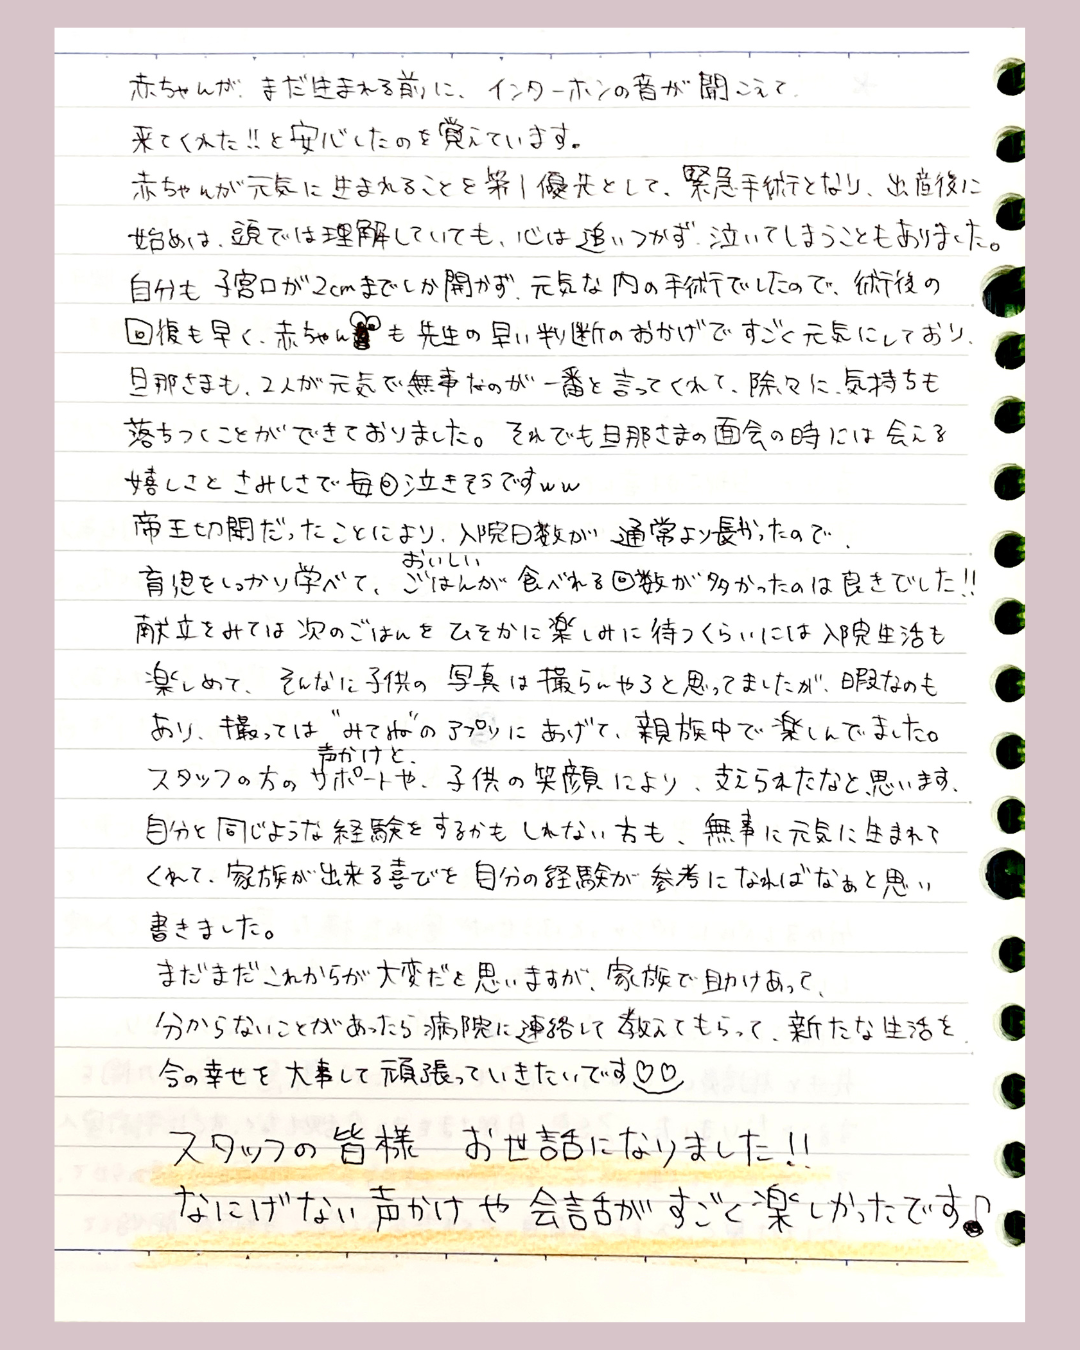 赤ちゃんが、まだ生まれる前に、インターホンの音が聞こえて、
来てくれた!!と安心したのを覚えています。
赤ちゃんが元気に生まれることを第1優先として、緊急手術となり、出産後に
始めは、頭では理解していても、心は追いつかず、泣いてしまうこともありました。
自分も子宮口が2cmまでしか開かず、元気な内の手術でしたので、術後の
回復も早く、赤ちゃんも先生の早い判断のおかげですごく元気にしており、
旦那さまも、2人が元気で無事なのが一番と言ってくれて、除々に、気持ちも
落ちつくことができておりました。それでも旦那さまの面会の時には会える
嬉しさとさみしさで毎回泣きそうですww
帝王切開だったことにより、入院日数が通常より長かったので、
おいしい
育児をしっかり学べて、ごはんが食べれる回数が多かったのは良きでした!!
献立をみては次のごはんをひそかに楽しみに待つくらいには入院生活も
楽しめて、そんなに子供の写真は撮らんやろと思ってましたが、暇なのも
あり、撮っては"みてね"のアプリにあげて、親族中で楽しんでました。
声かけと、
スタッフの方のサポートや、子供の笑顔により、支えられたなと思います。
自分と同じような経験をするかもしれない方も、無事に元気に生まれて
くれて、家族が出来る喜びを自分の経験が参考になればなぁと思い
書きました。
まだまだこれからが大変だと思いますが、家族で助けあって、
分からないことがあったら病院に連絡して教えてもらって、新たな生活を
今の幸せを大事して頑張っていきたいです♡♡
スタッフの皆様 お世話になりました!!
なにげない声かけや会話がすごく楽しかったです♪